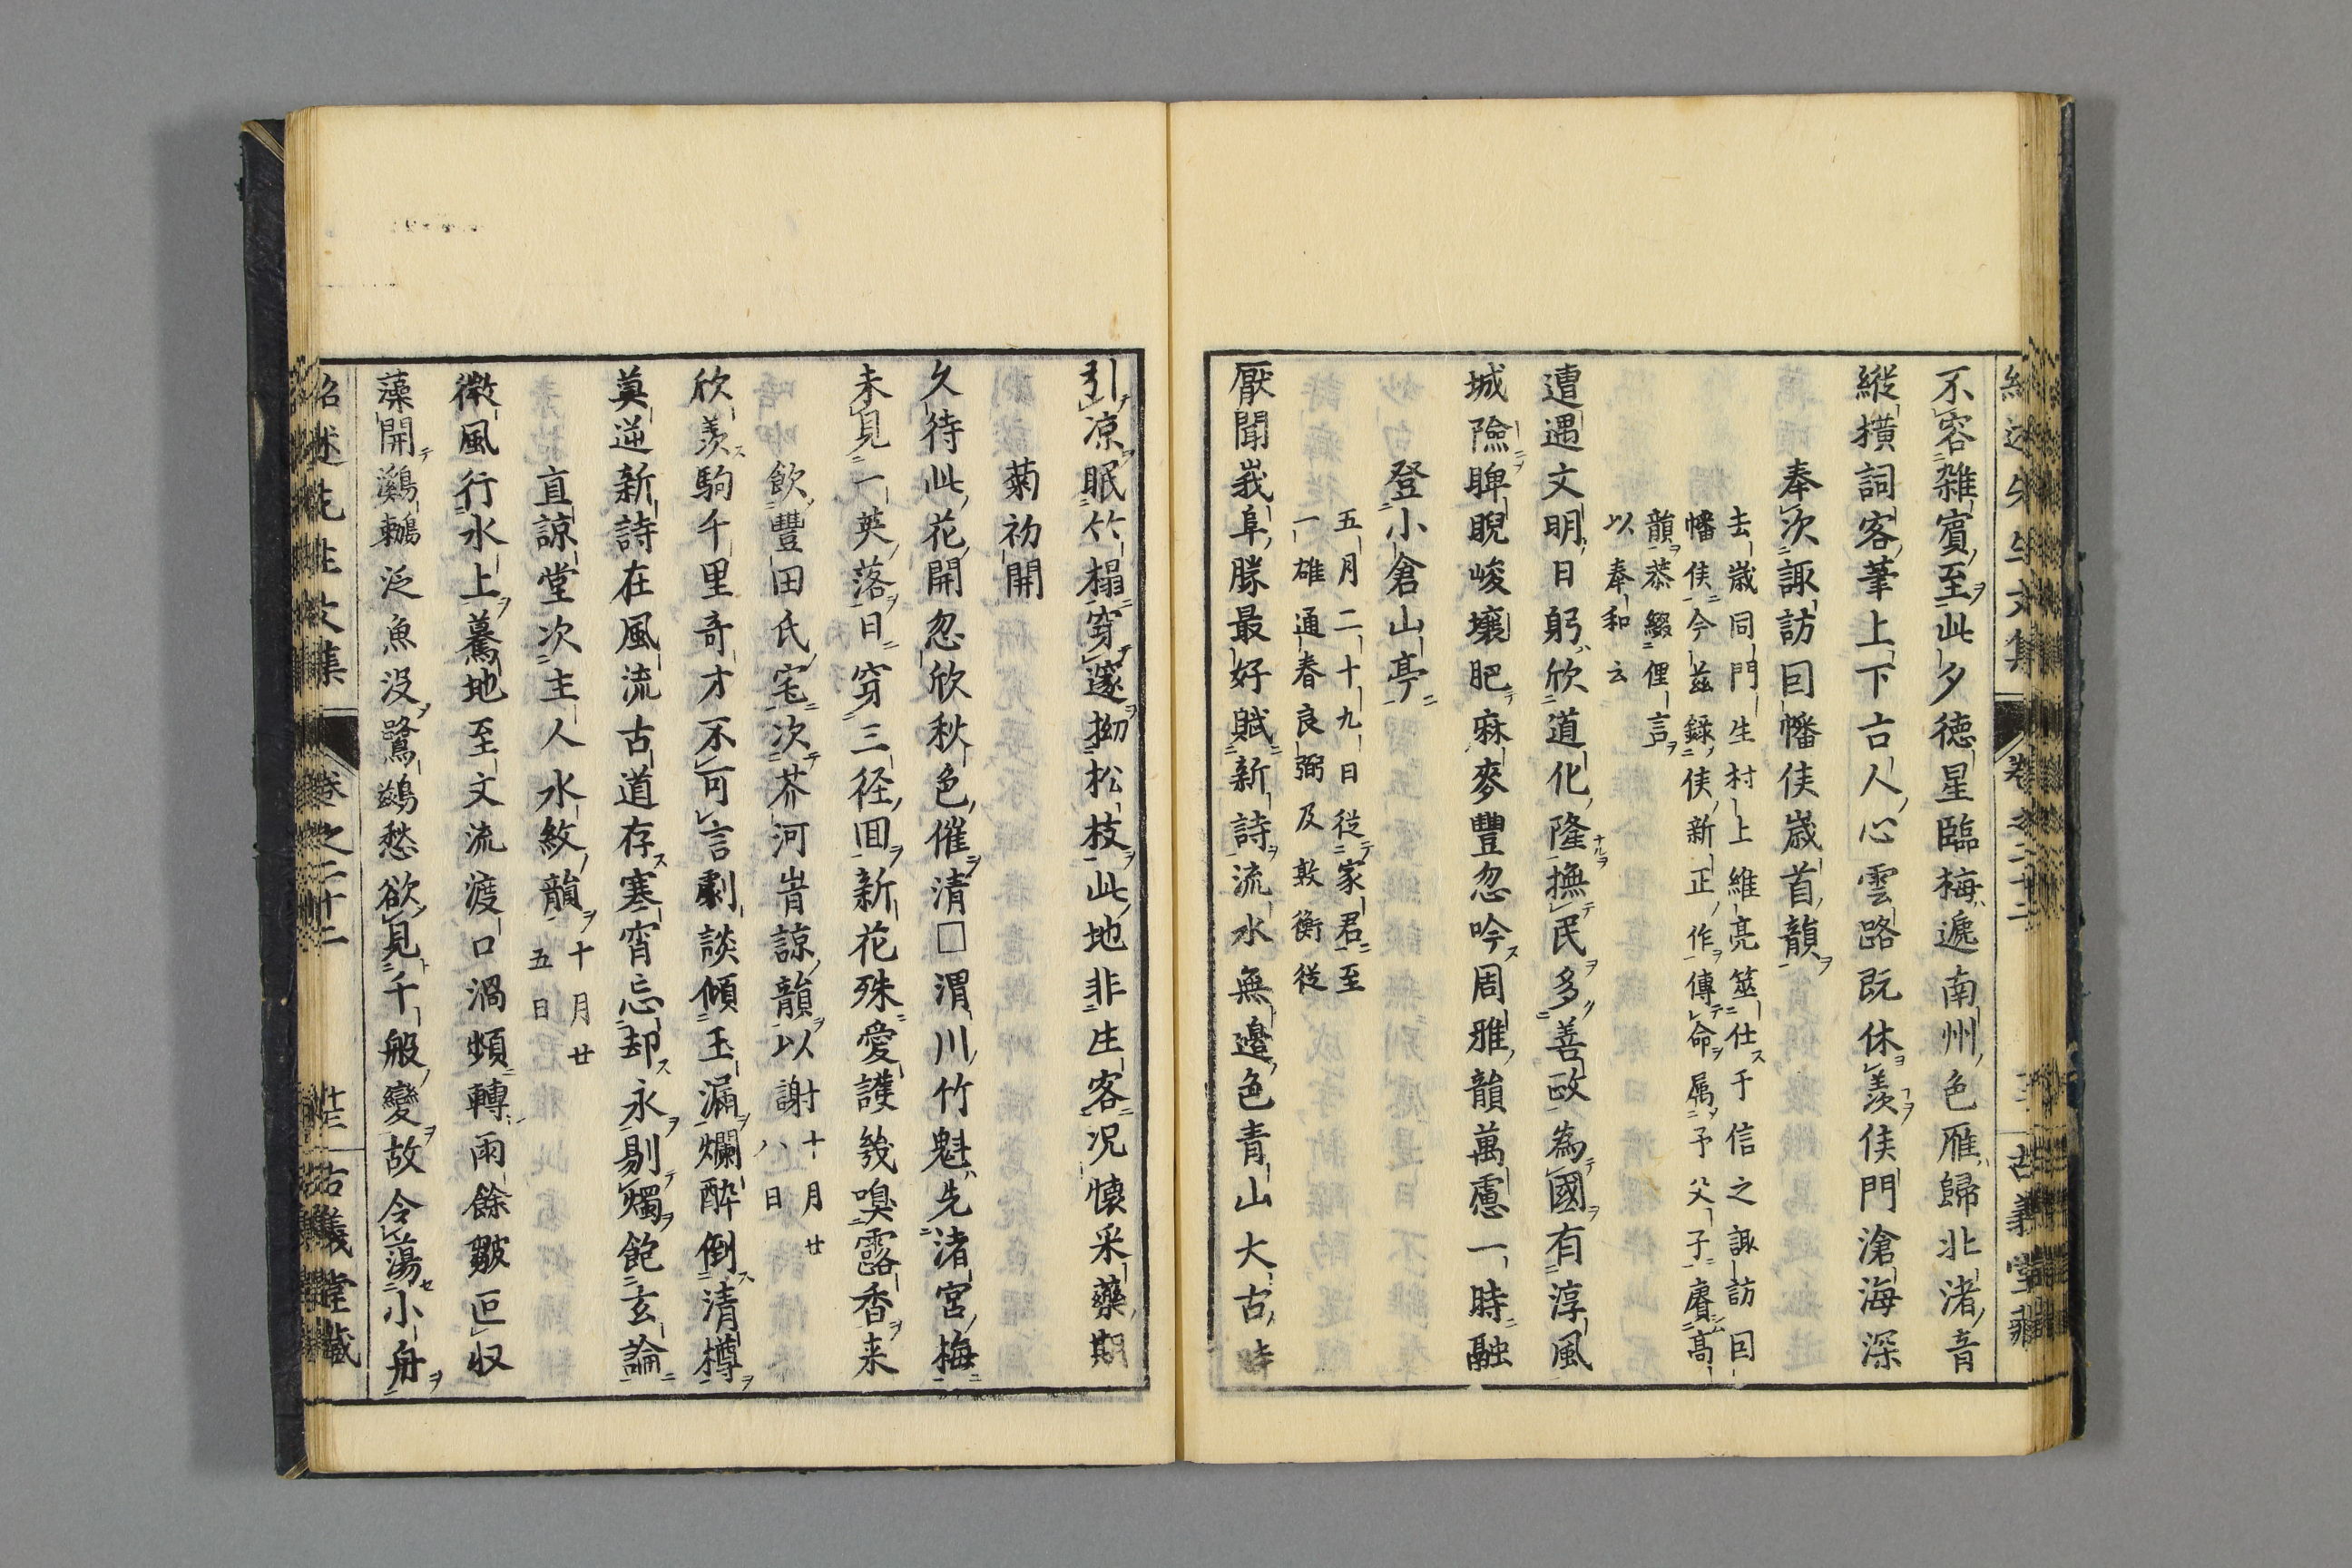 不容雑賓至此夕徳星臨梅遞南州色雁歸北渚音
縱横詞客筆上下古人心雲路既休羨侯門滄海深
奉次諏訪因幡侯歳首韻
去歳同門生村上維亮筮仕于信之諏訪因
幡侯今茲録侯新正作傳命属予父子賡高
韻恭綴俚言
以奉和云
遭遇文明日躬欣道化隆撫民多善政為國有淳風
城險睥睨峻壤肥麻麥豐忽吟周雅韻萬慮一時融
登小倉山亭
五月二十九日従家君至
一雄通春良弼及敦衡従
厭聞峩阜勝最好賦新詩流水無邊色青山大古時
引凉眠竹榻穿邃拗松枝此地非生客况懐采藥期
菊初開
久待此花開忽欣秋色催清□渭川竹魁先渚宮梅
未見一英落日穿三径回新花殊愛護幾嗅露香来
飲豊田氏宅次芥河峕諒韻以謝 十月廿
八日
欣羨駒千里奇才不可言劇談傾玉漏爛酔倒清樽
莫逆新詩在風流古道存寒宵忘却永剔燭飽玄論
直諒堂次主人水紋韻 十月廿
五日
微風行水上驀地至文流渡口渦頻轉雨餘皺叵収
藻開鸂鶒泛魚没鷺鷀愁欲見千般變故令蕩小舟
紹述先生文集 卷之二十二 古義堂藏
紹述先生文集 卷之二十二 古義堂藏